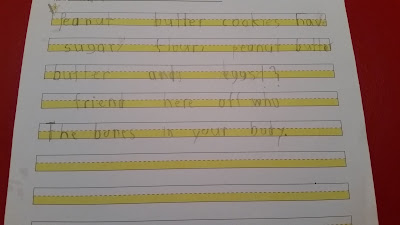 Peanut butter cookies have
sugar, flour, peanut butter
butter and eggs!?
friend here off who
The bones in your body.